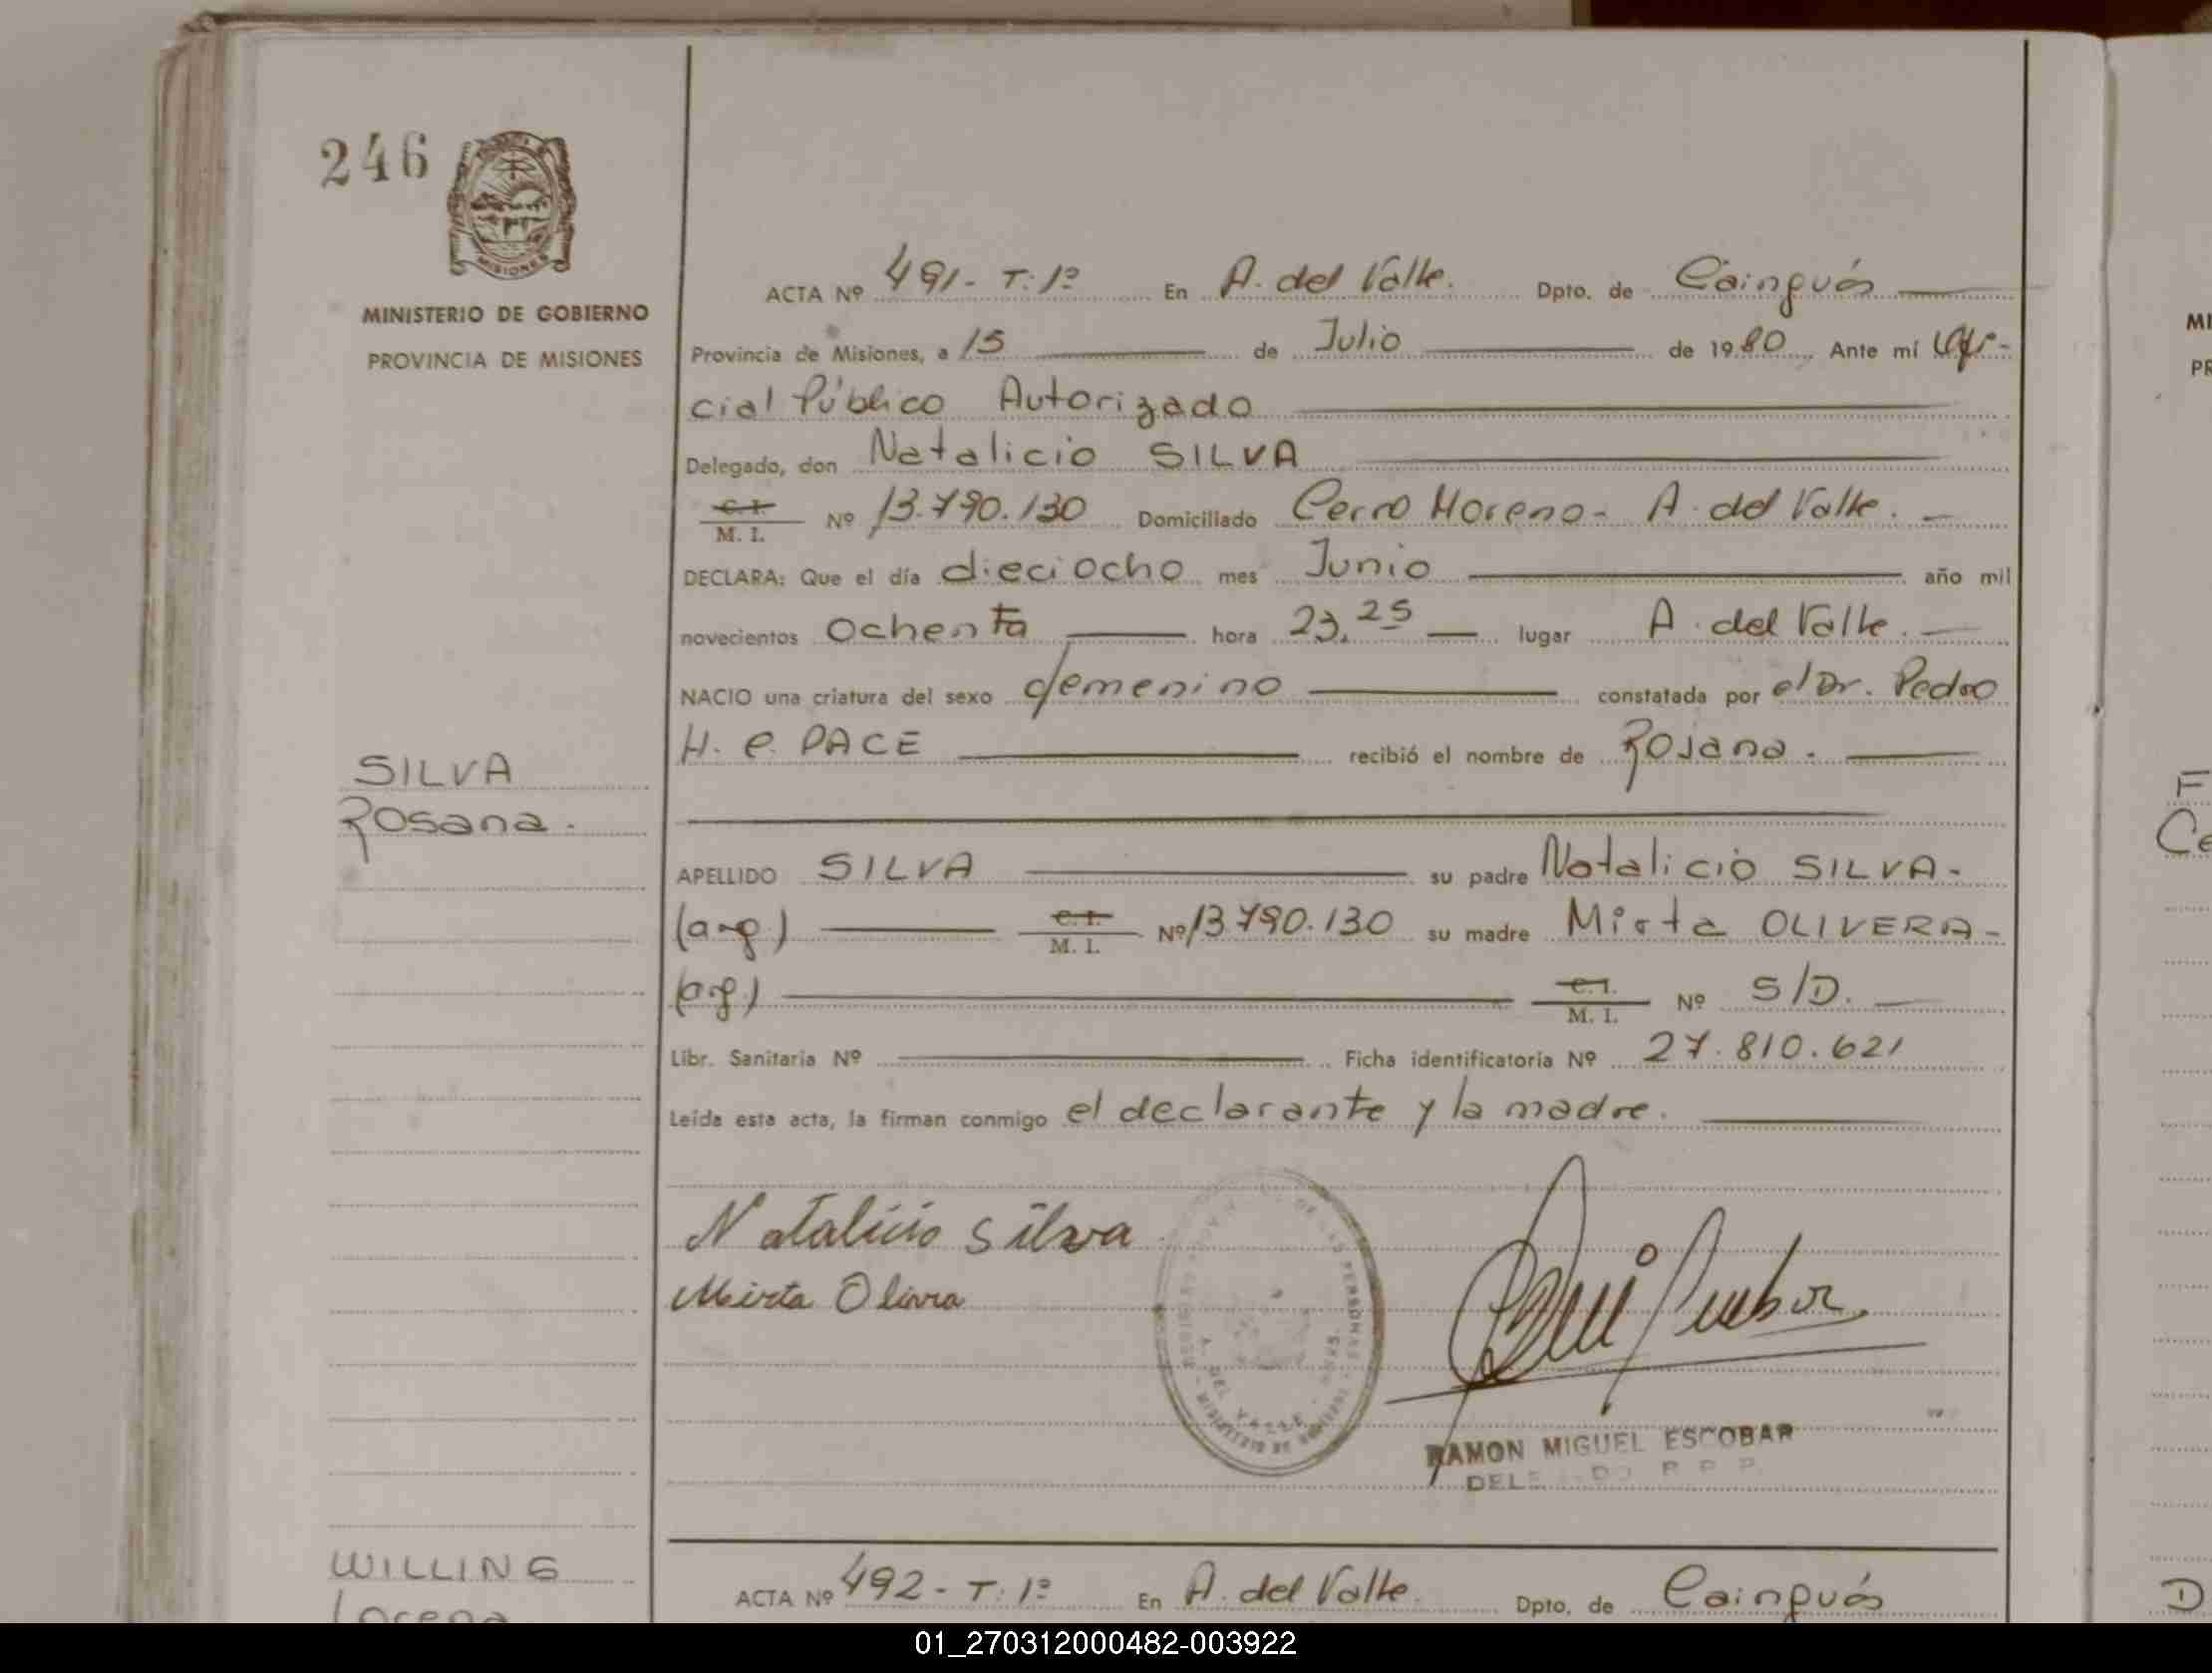 246
MISIONES
MINISTERIO DE GOBIERNO
PROVINCIA DE MISIONES
ACTA Nº 491- T: 1º En A. del Valle. Dpto. de Cainguás
Provincia de Misiones, a 15 de Julio de 1980, Ante mí Ofi-
cial Público Autorizado
Delegado, don Natalicio SILVA
C. I.
M. I. Nº 13.790.130 Domiciliado Cerro Moreno - A. del Valle.
DECLARA: Que el día dieciocho mes Junio año mil
novecientos ochenta hora 23,25 lugar A. del Valle.
NACIO una criatura del sexo femenino constatada por el Dr. Pedro
H. C. PACE recibió el nombre de Rosana.
SILVA
Rosana.
APELLIDO SILVA su padre Natalicio SILVA-
(arg.) C. I.
M. I. Nº 13.790.130 su madre Mirta OLIVERA-
(arg.) C. I.
M. I. Nº S/D.
Libr. Sanitaria Nº Ficha identificatoria Nº 27.810.621
Leída esta acta, la firman conmigo el declarante y la madre.
Natalicio Silva
Mirta Olivra
RAMON MIGUEL ESCOBAR
WILLING
Lorena
ACTA Nº 492- T: 1º En A. del Valle Dpto. de Cainguás
01_270312000482-003922